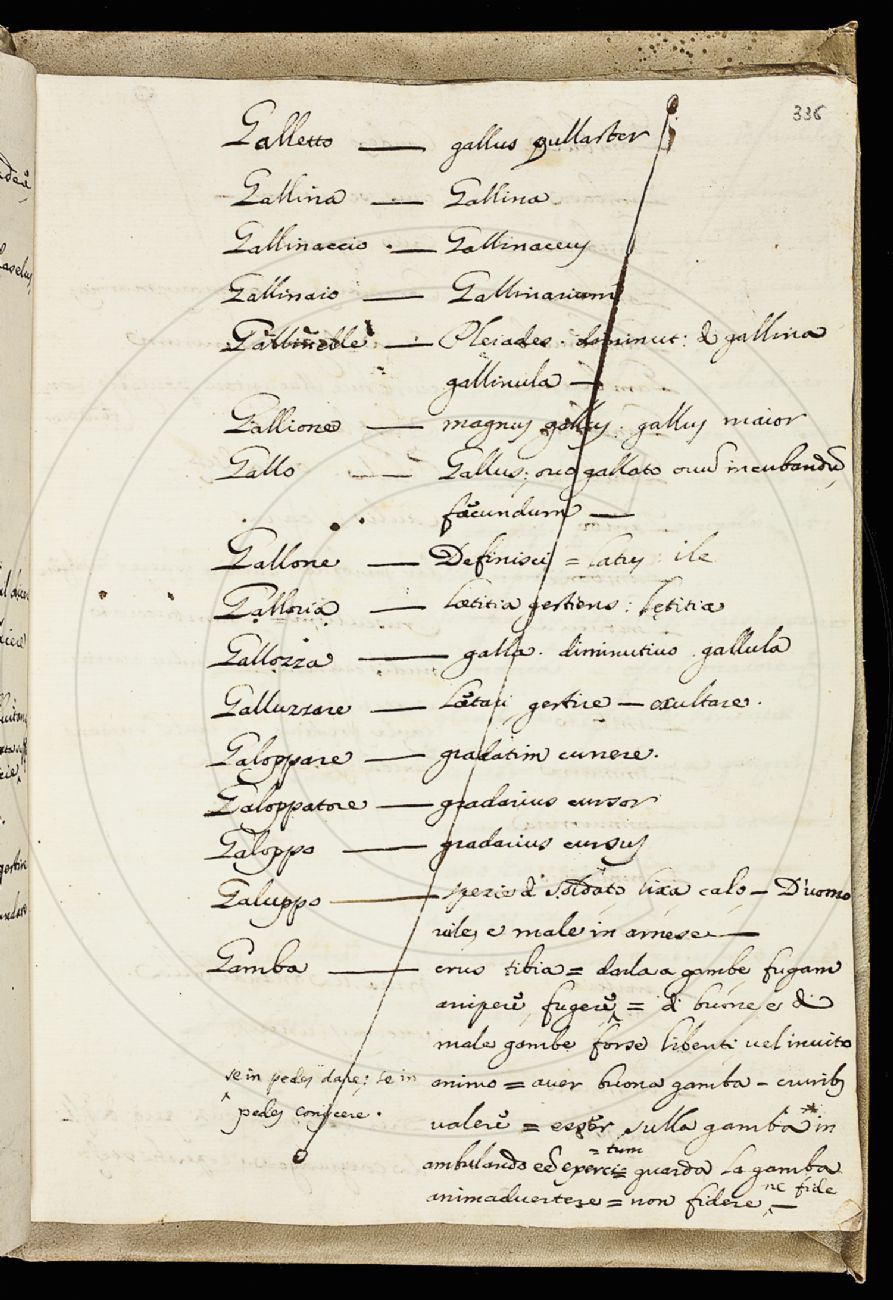 336
Galletto — gallus gullaster
Gallina — Gallina
Gallinaccio — Gallinaceus
Gallinaio — Gallinarium
Gallinelle — Pleiades. diminut: di gallina
gallinula —
Gallione — magnus gallus. gallus maior
Gallo — Gallus: ovo gallato ovũ incubandũ,
fæcundum —
Gallone — Definisci = latus ile
Galloria — Lætitia gestiens: lętitia
Gallozza — galla. diminutivo gallula
Galluzzare — Lætari, gestire — exultare.
Galoppare — gradatim currere.
Galoppatore — gradarius cursor
Galoppo — gradarius cursus
Galuppo — spezie di soldato, lixa calo — D'uomo
vile, e male in arnese —
Gamba — crus tibia = darla a gambe fugam
ariperẽ, fugerẽ, = di buone, e di
male gambe forse libenti vel invito
se in pedes dare; se in
animo = aver buona gamba — crurib9
pedes conjicere.
valerẽ = essẽr sulla gamba in
= tum
ambulando ed eperci= guarda la gamba
ne fide
animadvertere = non fidere, —